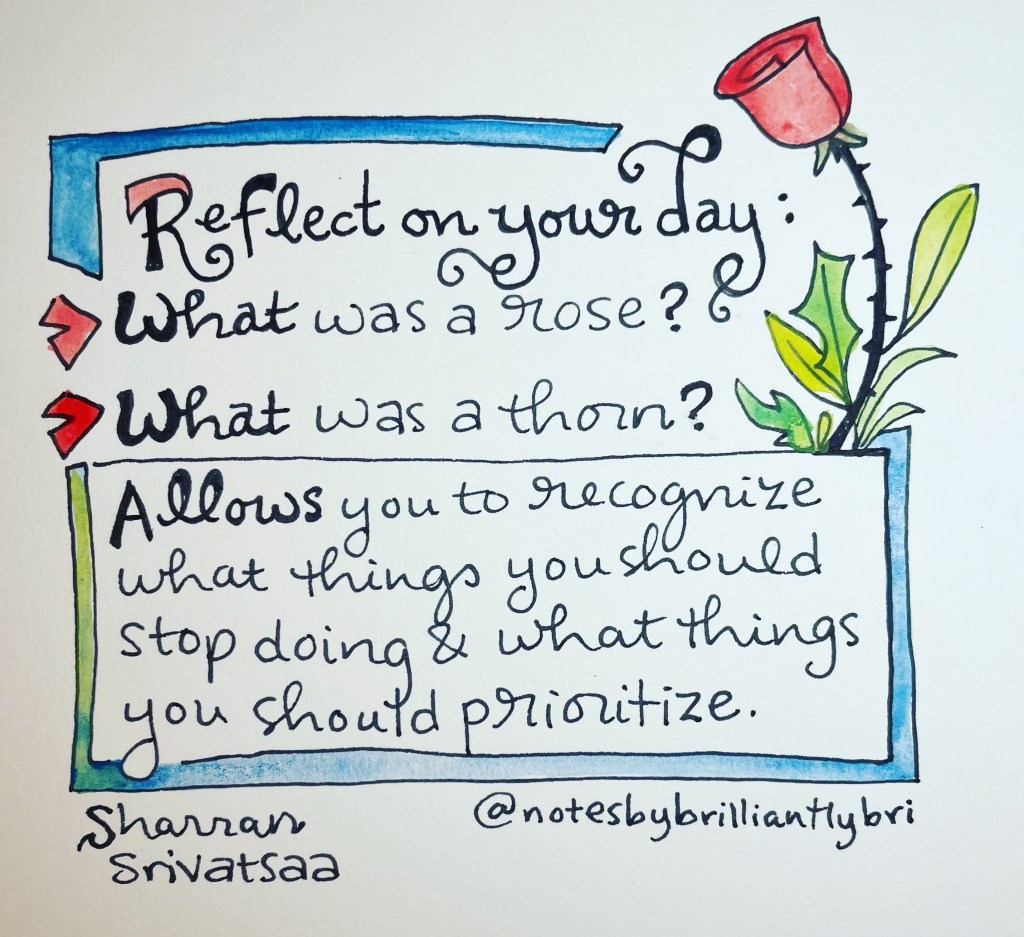 Reflect on your day:
What was a rose?
What was a thorn?
Allows you to recognize
what things you should
stop doing & what things
you should prioritize.
Sharran
Srivatsaa
@notesbybrilliantlybri